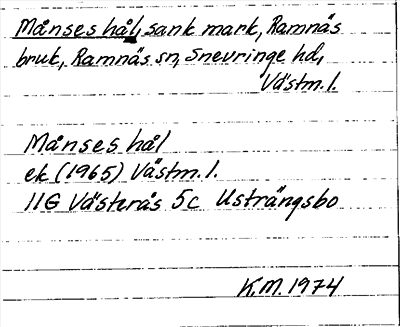 Månses hål, sank mark, Ramnäs
bruk, Ramnäs sn, Snevringe hd,
Västm.l.
Månses hål
ek (1965) Västm.l.
11G Västerås 5c Usträngsbo
K.M. 1974